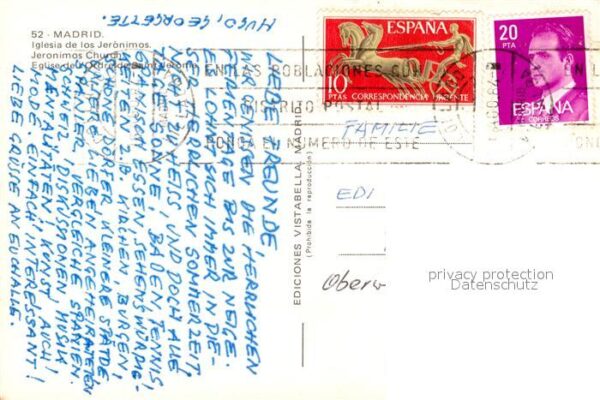 52 - MADRID.
Iglesia de los Jerónimos.
Jeronimos Church.
HUGO, GEORGETTE.
LIEBE FREUNDE,
WIR GENIESSEN DIE HERRLICHEN
FERIENTAGE BIS ZUR NEIGE.
ES LOHNT SICH IMMER IN DIE-
SER HERRLICHEN SOMMERZEIT,
NICHT ZU HEISS UND DOCH ALLE
TAGE SONNE, BADEN, TENNIS,
SPANISCH ESSEN, SEHENSWÜRDIG-
KEITEN Z.B. KIRCHEN, BURGEN,
ANDERE DÖRFER, KLEINERE STÄDTE
UNSERE LIEBEN ANGEHEIRATETEN
VERGLEICHE SPANIEN.
DISKUSSIONEN MUSIK
KUNST AUCH
MODE EINFACH INTERESSANT!
LIEBE GRÜSSE AN EUCH ALLE.
EDICIONES VISTABELLA, MADRID
(Prohibida la reproducción)
ESPAÑA
10
PTAS CORRESPONDENCIA URGENTE
20
PTA
ESPAÑA
CORREOS
EN LAS POBLACIONES CON
DISTRITO POSTAL
PONGA EN NUMERO DE ESTE
EN L
FAMILIE
EDI
Oberw
privacy protection
Datenschutz